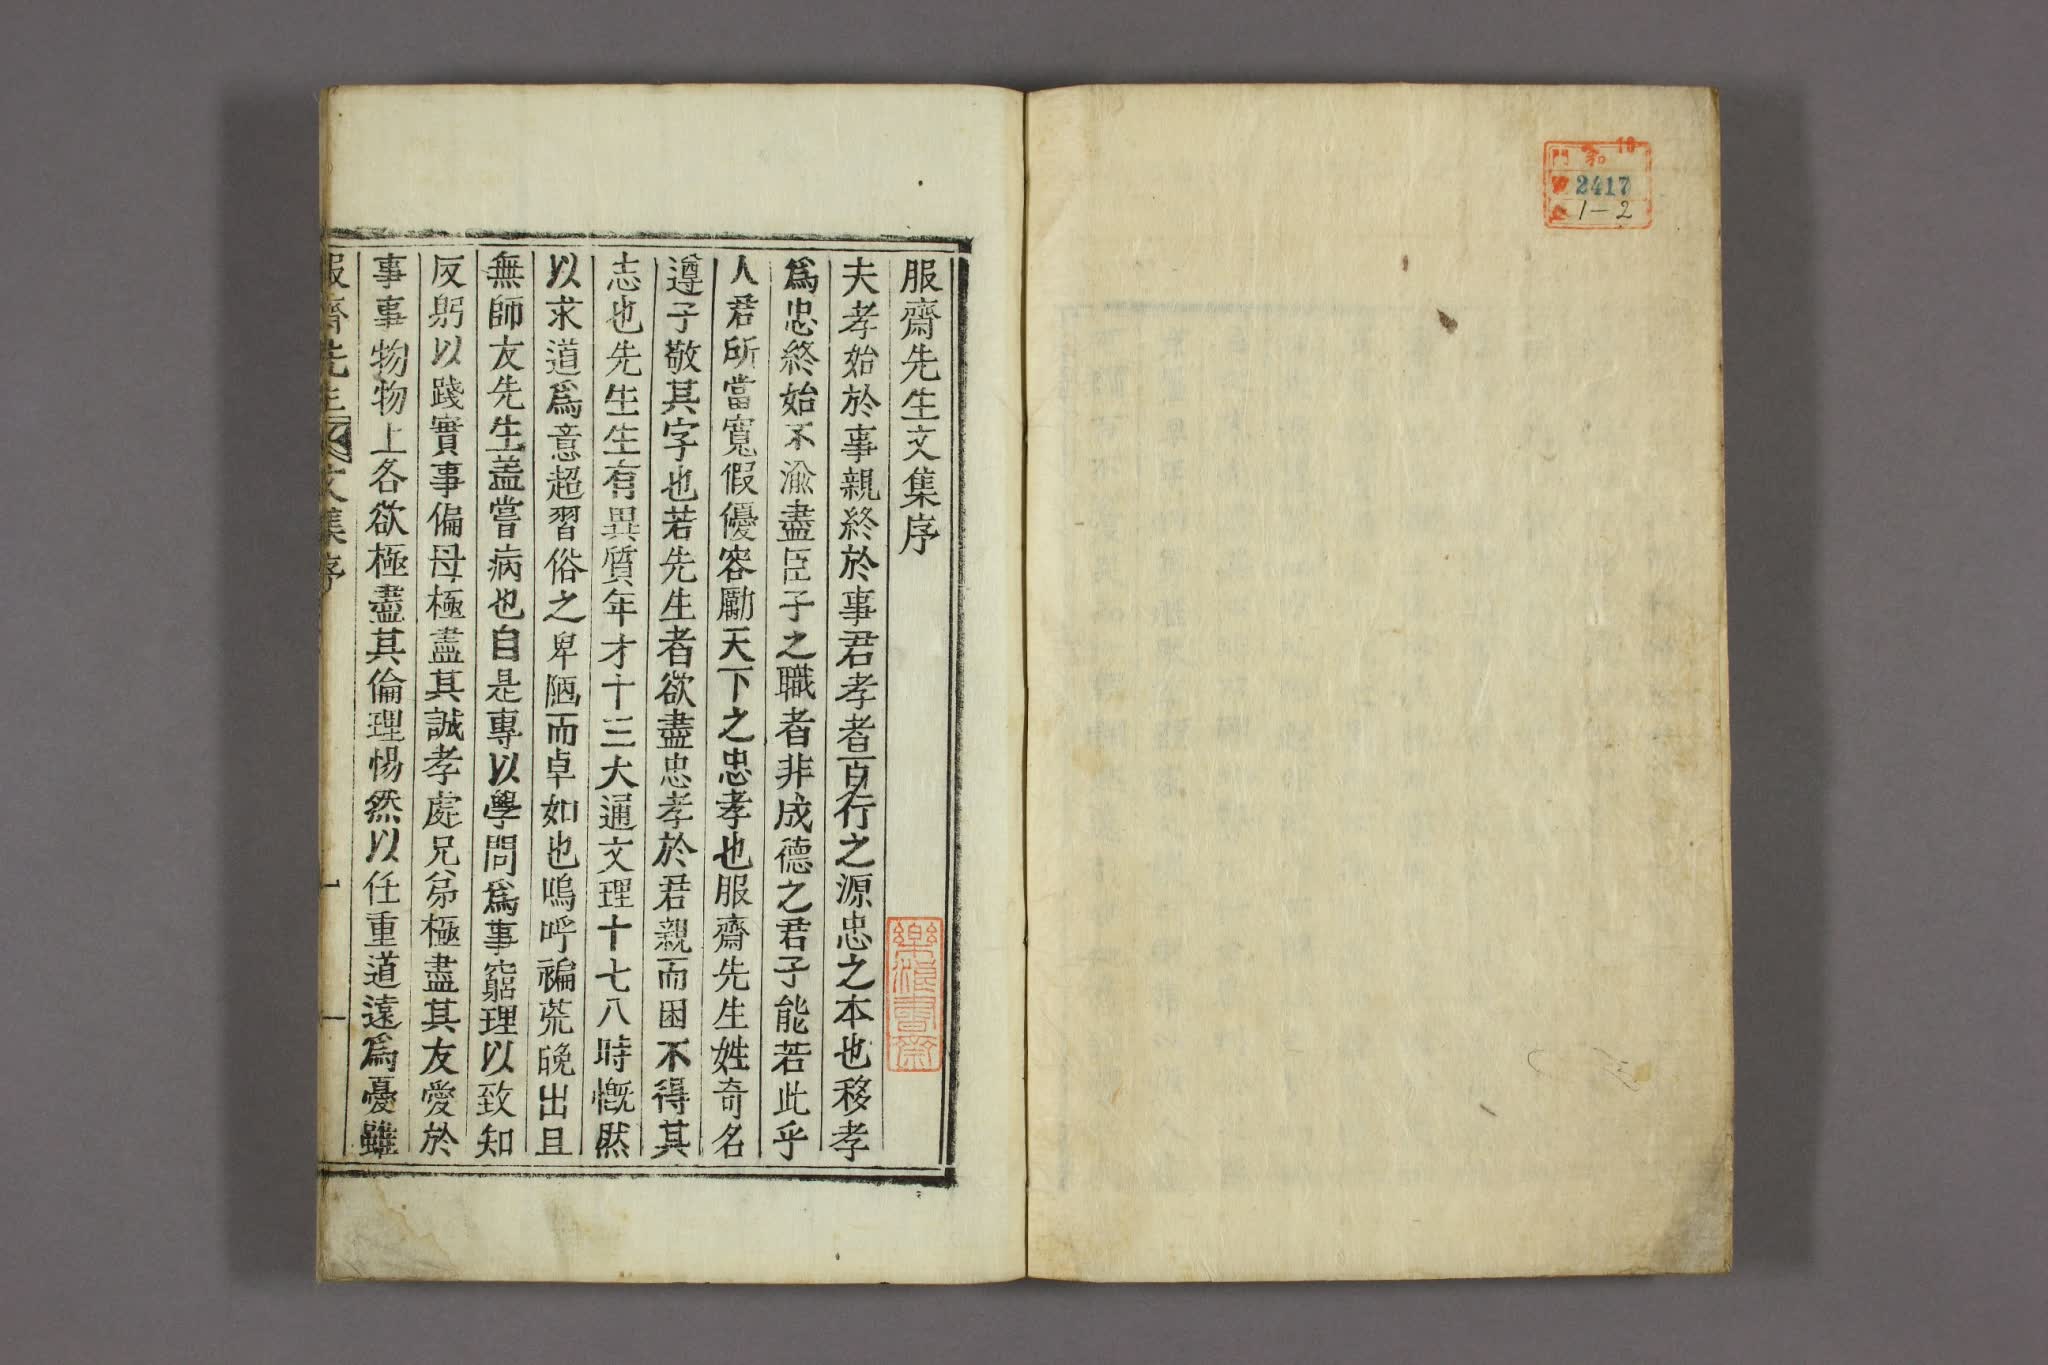 門 和 10
2417
1-2
服齋先生文集序
夫孝始於事親終於事君孝者百行之源忠之本也移孝
爲忠終始不渝盡臣子之職者非成德之君子能若此乎
人君所當寬假優容勵天下之忠孝也服齋先生姓奇名
遵子敬其字也若先生者欲盡忠孝於君親而困不得其
志也先生生有異質年才十三大通文理十七八時慨然
以求道爲意超習俗之卑陋而卓如也嗚呼褊荒晩出且
無師友先生盖嘗病也自是專以學問爲事窮理以致知
反躬以踐實事偏母極盡其誠孝處兄弟極盡其友愛於
事事物物上各欲極盡其倫理惕然以任重道遠爲憂雖
服齋先生文集序 一